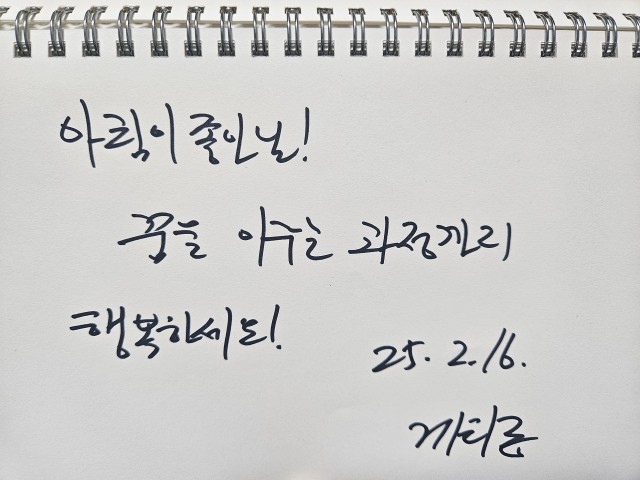 아침이 좋은 날!
꿈을 이루는 과정까지
행복하세요!
25. 2. 16.